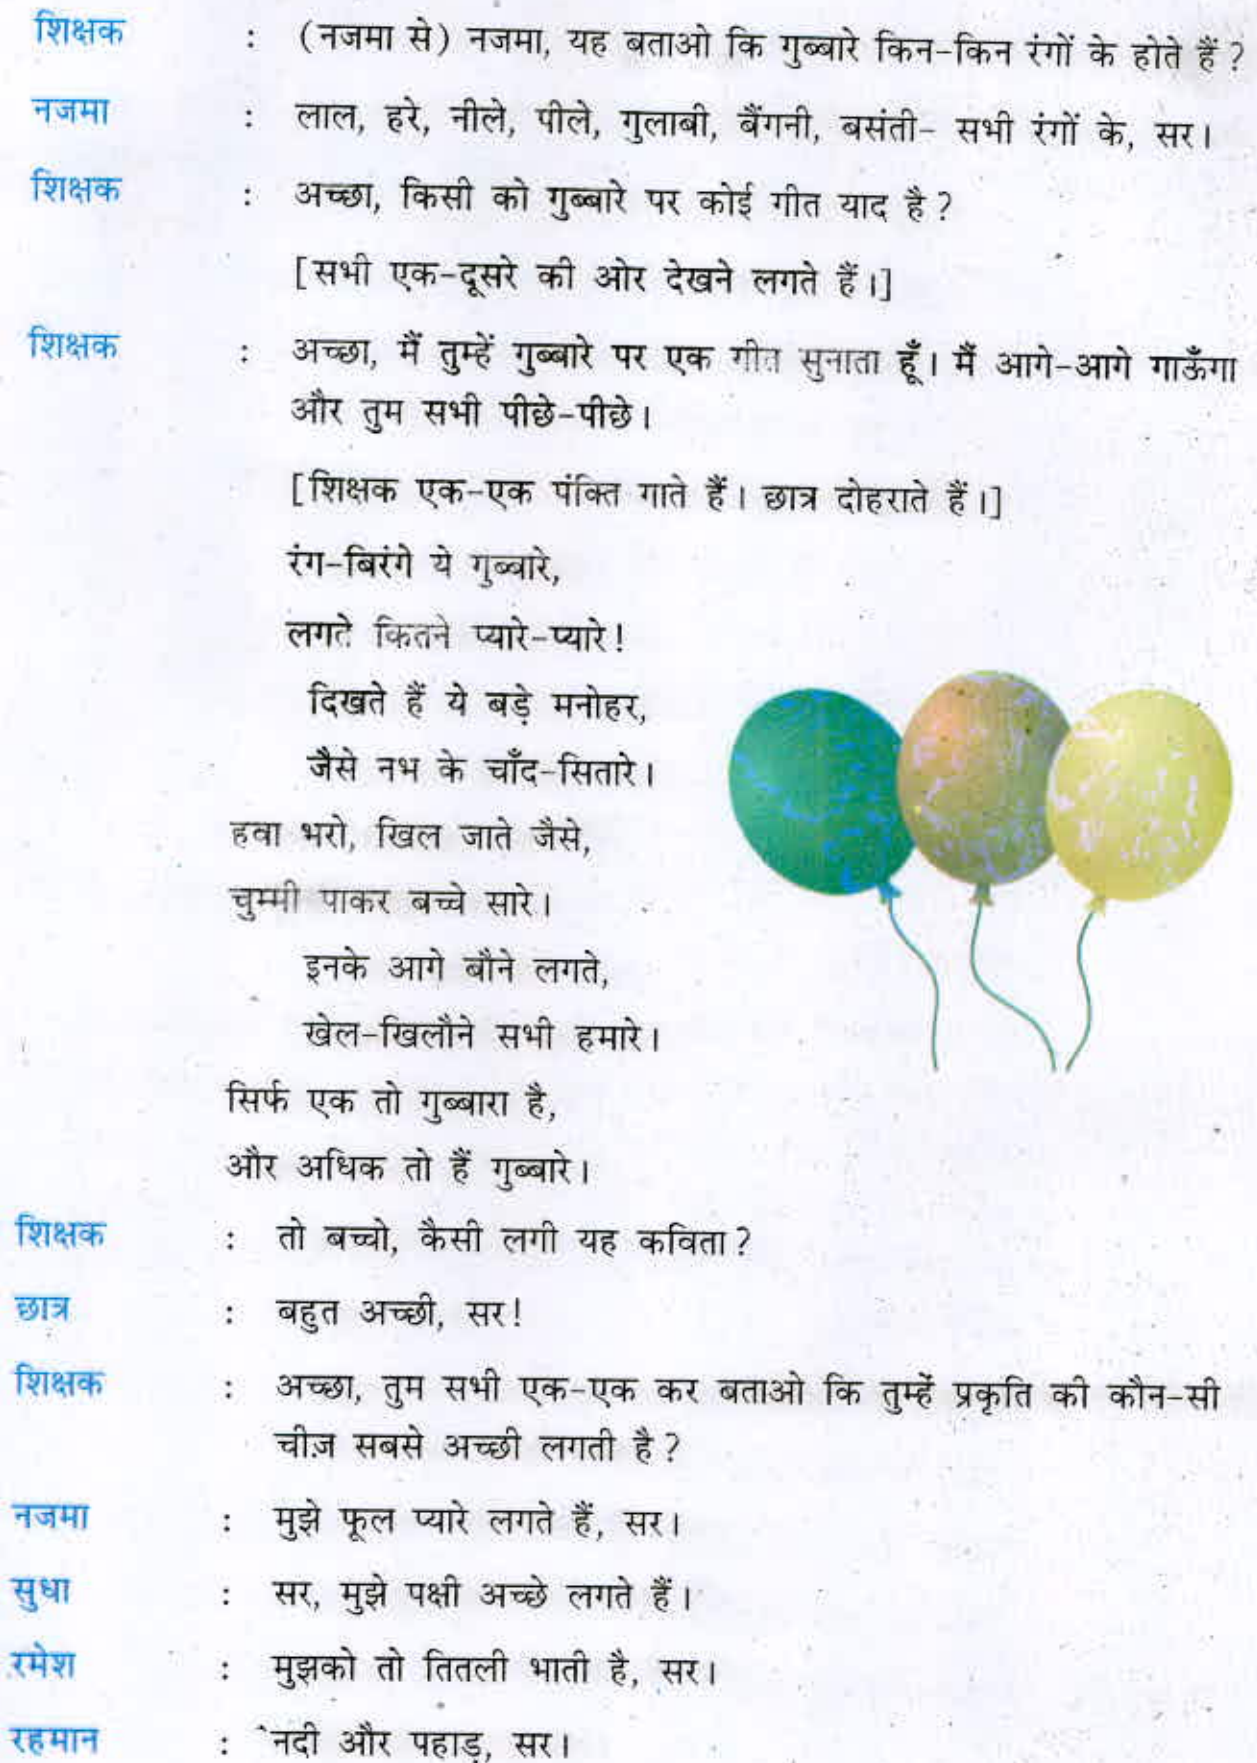 शिक्षक : (नजमा से) नजमा, यह बताओ कि गुब्बारे किन-किन रंगों के होते हैं ?
नजमा : लाल, हरे, नीले, पीले, गुलाबी, बैंगनी, बसंती- सभी रंगों के, सर।
शिक्षक : अच्छा, किसी को गुब्बारे पर कोई गीत याद है ?
[सभी एक-दूसरे की ओर देखने लगते हैं।]
शिक्षक : अच्छा, मैं तुम्हें गुब्बारे पर एक गीत सुनाता हूँ। मैं आगे-आगे गाऊँगा
और तुम सभी पीछे-पीछे।
[शिक्षक एक-एक पंक्ति गाते हैं। छात्र दोहराते हैं।]
रंग-बिरंगे ये गुब्बारे,
लगते कितने प्यारे-प्यारे!
दिखते हैं ये बड़े मनोहर,
जैसे नभ के चाँद-सितारे।
हवा भरो, खिल जाते जैसे,
चुम्मी पाकर बच्चे सारे।
इनके आगे बौने लगते,
खेल-खिलौने सभी हमारे।
सिर्फ एक तो गुब्बारा है,
और अधिक तो हैं गुब्बारे।
शिक्षक : तो बच्चो, कैसी लगी यह कविता ?
छात्र : बहुत अच्छी, सर!
शिक्षक : अच्छा, तुम सभी एक-एक कर बताओ कि तुम्हें प्रकृति की कौन-सी
चीज़ सबसे अच्छी लगती है ?
नजमा : मुझे फूल प्यारे लगते हैं, सर।
सुधा : सर, मुझे पक्षी अच्छे लगते हैं।
रमेश : मुझको तो तितली भाती है, सर।
रहमान : नदी और पहाड़, सर।